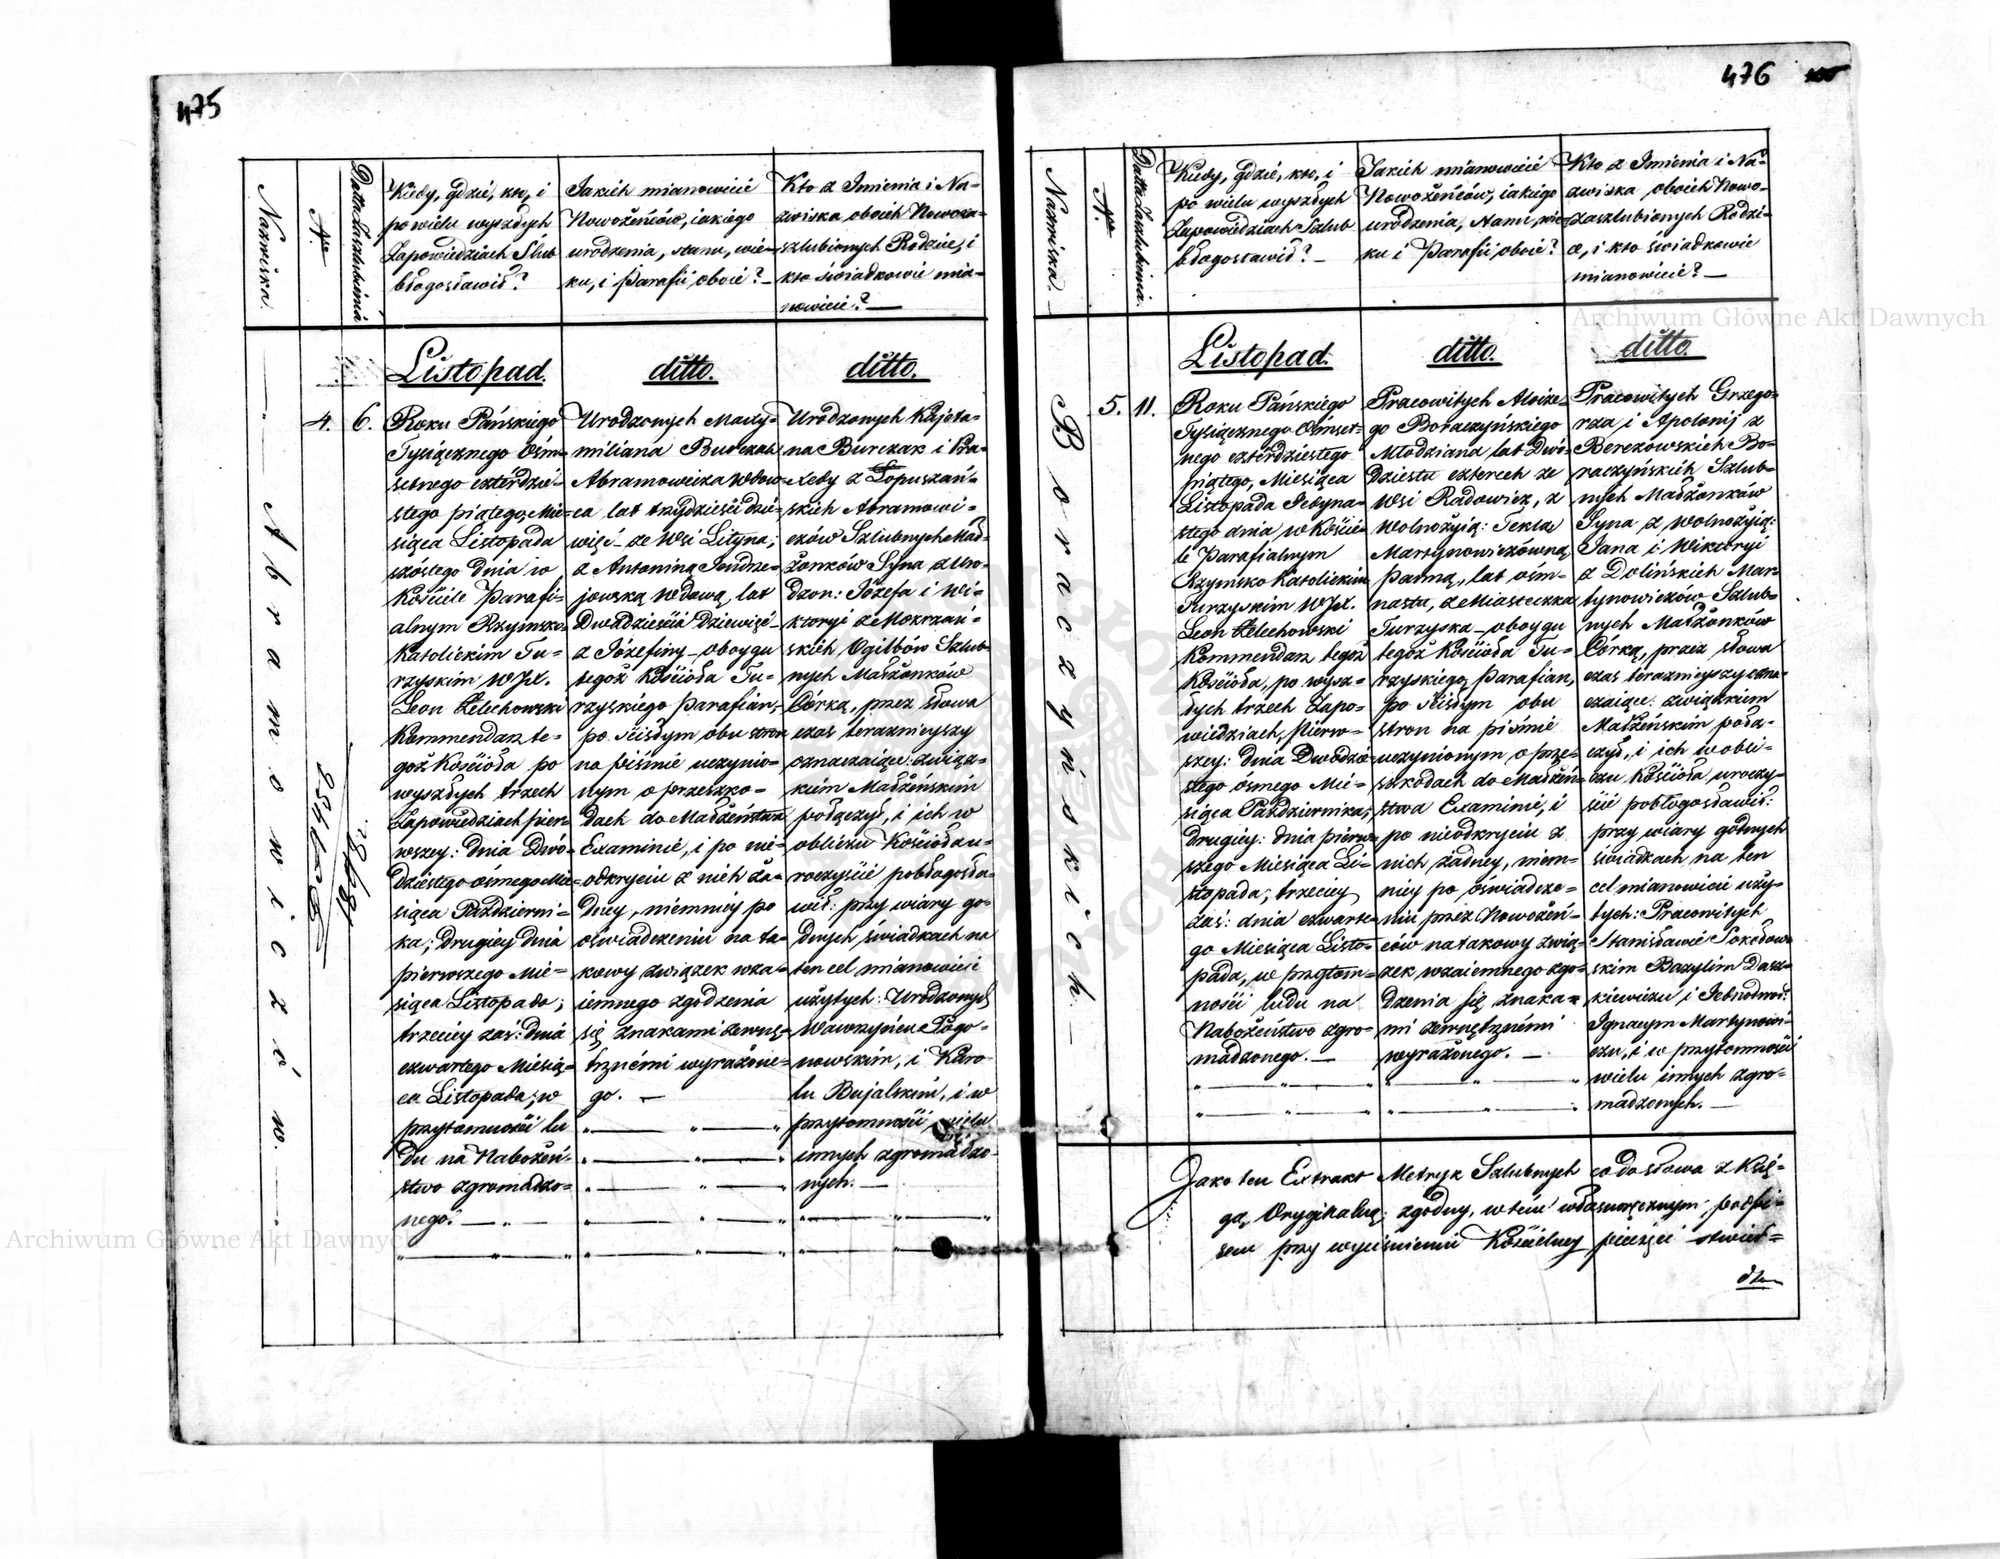 475
Nazwiska.
Nro
Datta Zaszlubinia
Kiedy, gdzie, kto, i
po wielu wyszłych
Zapowiedziach Slub
błogosławił?
Jakich mianowicie
Nowożeńców, iakiego
urodzenia, stanu, wie-
ku, i Parafii oboie? -
Kto z Imienia i Na-
zwiska oboich Nowoza-
szlubionych Rodzice, i
kto świadkowie mia-
nowicie? —
Abramowiczów.
4.
6.
Listopad.
Roku Pańskiego
Tysiącznego Ośm-
setnego czterdzie-
stego piątego, Mie-
siąca Listopada
szóstego dnia w
Kościele Parafi-
alnym Rzymsko-
Katolickim Tu-
rzyskim WJX.
Leon Żelechowski
Kommendarz te-
goż Kościoła po
wyszłych trzech
Zapowiedziach pier-
wszey: dnia Dwó-
dziestego osmego Mie-
siąca Październi-
ka; drugiey dnia
pierwszego Mie-
siąca Listopada;
trzeciey zaś: dnia
czwartego Miesią-
ca Listopada; w
przytomności lu
du na Nabożeń-
stwo zgromadzo-
nego. —
ditto.
Urodzonych Maxy-
miliana Burczak
Abramowicza wdow-
ca lat trzydzieści dzie-
więć - ze Wsi Lityna;
z Antoniną Jendrze-
jowską wdową, lat
Dwadzieścia dziewięć -
z Józefiny - oboygu
tegoż Kościoła Tu-
rzyskiego Parafian,
po ścisłym obu stron
na piśmie uczynio-
nym o przeszko-
dach do Małżeństwa
Examinie, i po nie-
odkryciu z nich ża-
dney, niemniey po
oświadczeniu na ta-
kowy związek wza-
iemnego zgodzenia
się znakami zewnę-
trznémi wyrażone-
go. —
ditto.
Urodzonych Kajeta-
na Burczak i Xa-
Łopuszań-
skich Abramowi-
czów Szlubnych Mał-
żonków Syna z Uro-
dzon: Józefa i Wi-
ktoryi z Mokrzań-
skich Ogilbów Szlub-
nych Małżonków
Córką, przez słowa
czas terazniejszy
oznaczaiące: związ-
kiem Małżeńskim
połączył, i ich w
obliczu Kościoła u-
roczyście pobłogosła-
wił: przy wiary go-
dnych świadkach na
ten cel mianowicie
użytych: Urodzonych
Wawrzyńcu Pogo-
nowskim, i Karo-
lu Bujalskim, i w
przytomności wielu
innych zgromadzo-
nych. —
476
Nazwiska.
Nro
Datta Zaszlubinia.
Kiedy, gdzie, kto, i
po wielu wyszłych
Zapowiedziach Szlub
błogosławił? -
Jakich mianowicie
Nowożeńców, iakiego
urodzenia, stanu, wie-
ku i Parafii oboie?
Kto z Imienia i Na-
zwiska oboich Nowo-
zaszlubionych Rodzi-
ce, i kto świadkowie
mianowicie? —
Boraczyńskich.
5.
11.
Listopad.
Roku Pańskiego
Tysiącznego Ośmset-
nego czterdziestego
piątego, Miesiąca
Listopada Jedyna-
stego dnia w Koście-
le Parafialnym
Rzymsko Katolickim
Turzyskim WJX.
Leon Żelechowski
Kommendarz tegoż
Kościoła, po wysz-
łych trzech Zapo-
wiedziach, Pierw-
szey: dnia Dwódzie-
stego ósmego Mie-
siąca Października;
drugiey: dnia pierw-
szego Miesiąca Li-
stopada; trzeciey
zaś: dnia czwarte-
go Miesiąca Listo-
pada, w przytom-
ności ludu na
Nabożeństwo zgro-
madzonego. —
ditto.
Pracowitych Aloize-
go Boraczyńskiego
Młodziana lat Dwó-
dziestu czterech ze
Wsi Radowicz, z
Wolnożyią: Teklą
Martynowiczówną
Panną, lat ośm-
nastu, z Miasteczka
Turzyska - oboygu
tegoż Kościoła Tu-
rzyskiego Parafian,
po ścisłym obu
stron na piśmie
uczynionym o prze-
szkodach do Małżeń-
stwa Examinie, i
po nieodkryciu z
nich żadney, niem-
niey po oświadcze-
niu przez Nowożeń-
ców na takowy zwią-
zek wzaiemnego zgo-
dzenia się znaka-
mi zewnętrznémi
wyrażonego. —
ditto.
Pracowitych Grzego-
rza i Apolonij z
Berezowskich Bo-
raczyńskich Szlub-
nych Małżonków
Syna z wolnożyią:
Jana i Wiktoryi
z Dolińskich Mar-
tynowiczów Szlub-
nych Małżonków
Córką, przez słowa
czas terazniejszy ozna-
czaiące: związkiem
Małżeńskim połą-
czył, i ich w obli-
czu Kościoła uroczy-
ście pobłogosławił:
przy wiary godnych
świadkach na ten
cel mianowicie uży-
tych: Pracowitych
Stanisławie Sokołow-
skim Bazylim Dasz-
kiewiczu i Jednodwor:
Ignacym Martynowi-
czu, i w przytomności
wielu innych zgro-
madzonych. —
Jako ten Extrakt Metryk Szlubnych co do słowa z Księ-
gą Oryginalną; zgodny, w tém własnoręcznym podpi-
sem przy wyciśnieniu Kościelney pieczęci stwier-
dza
Archiwum Główne Akt Dawnych
Archiwum Główne Akt Dawnych